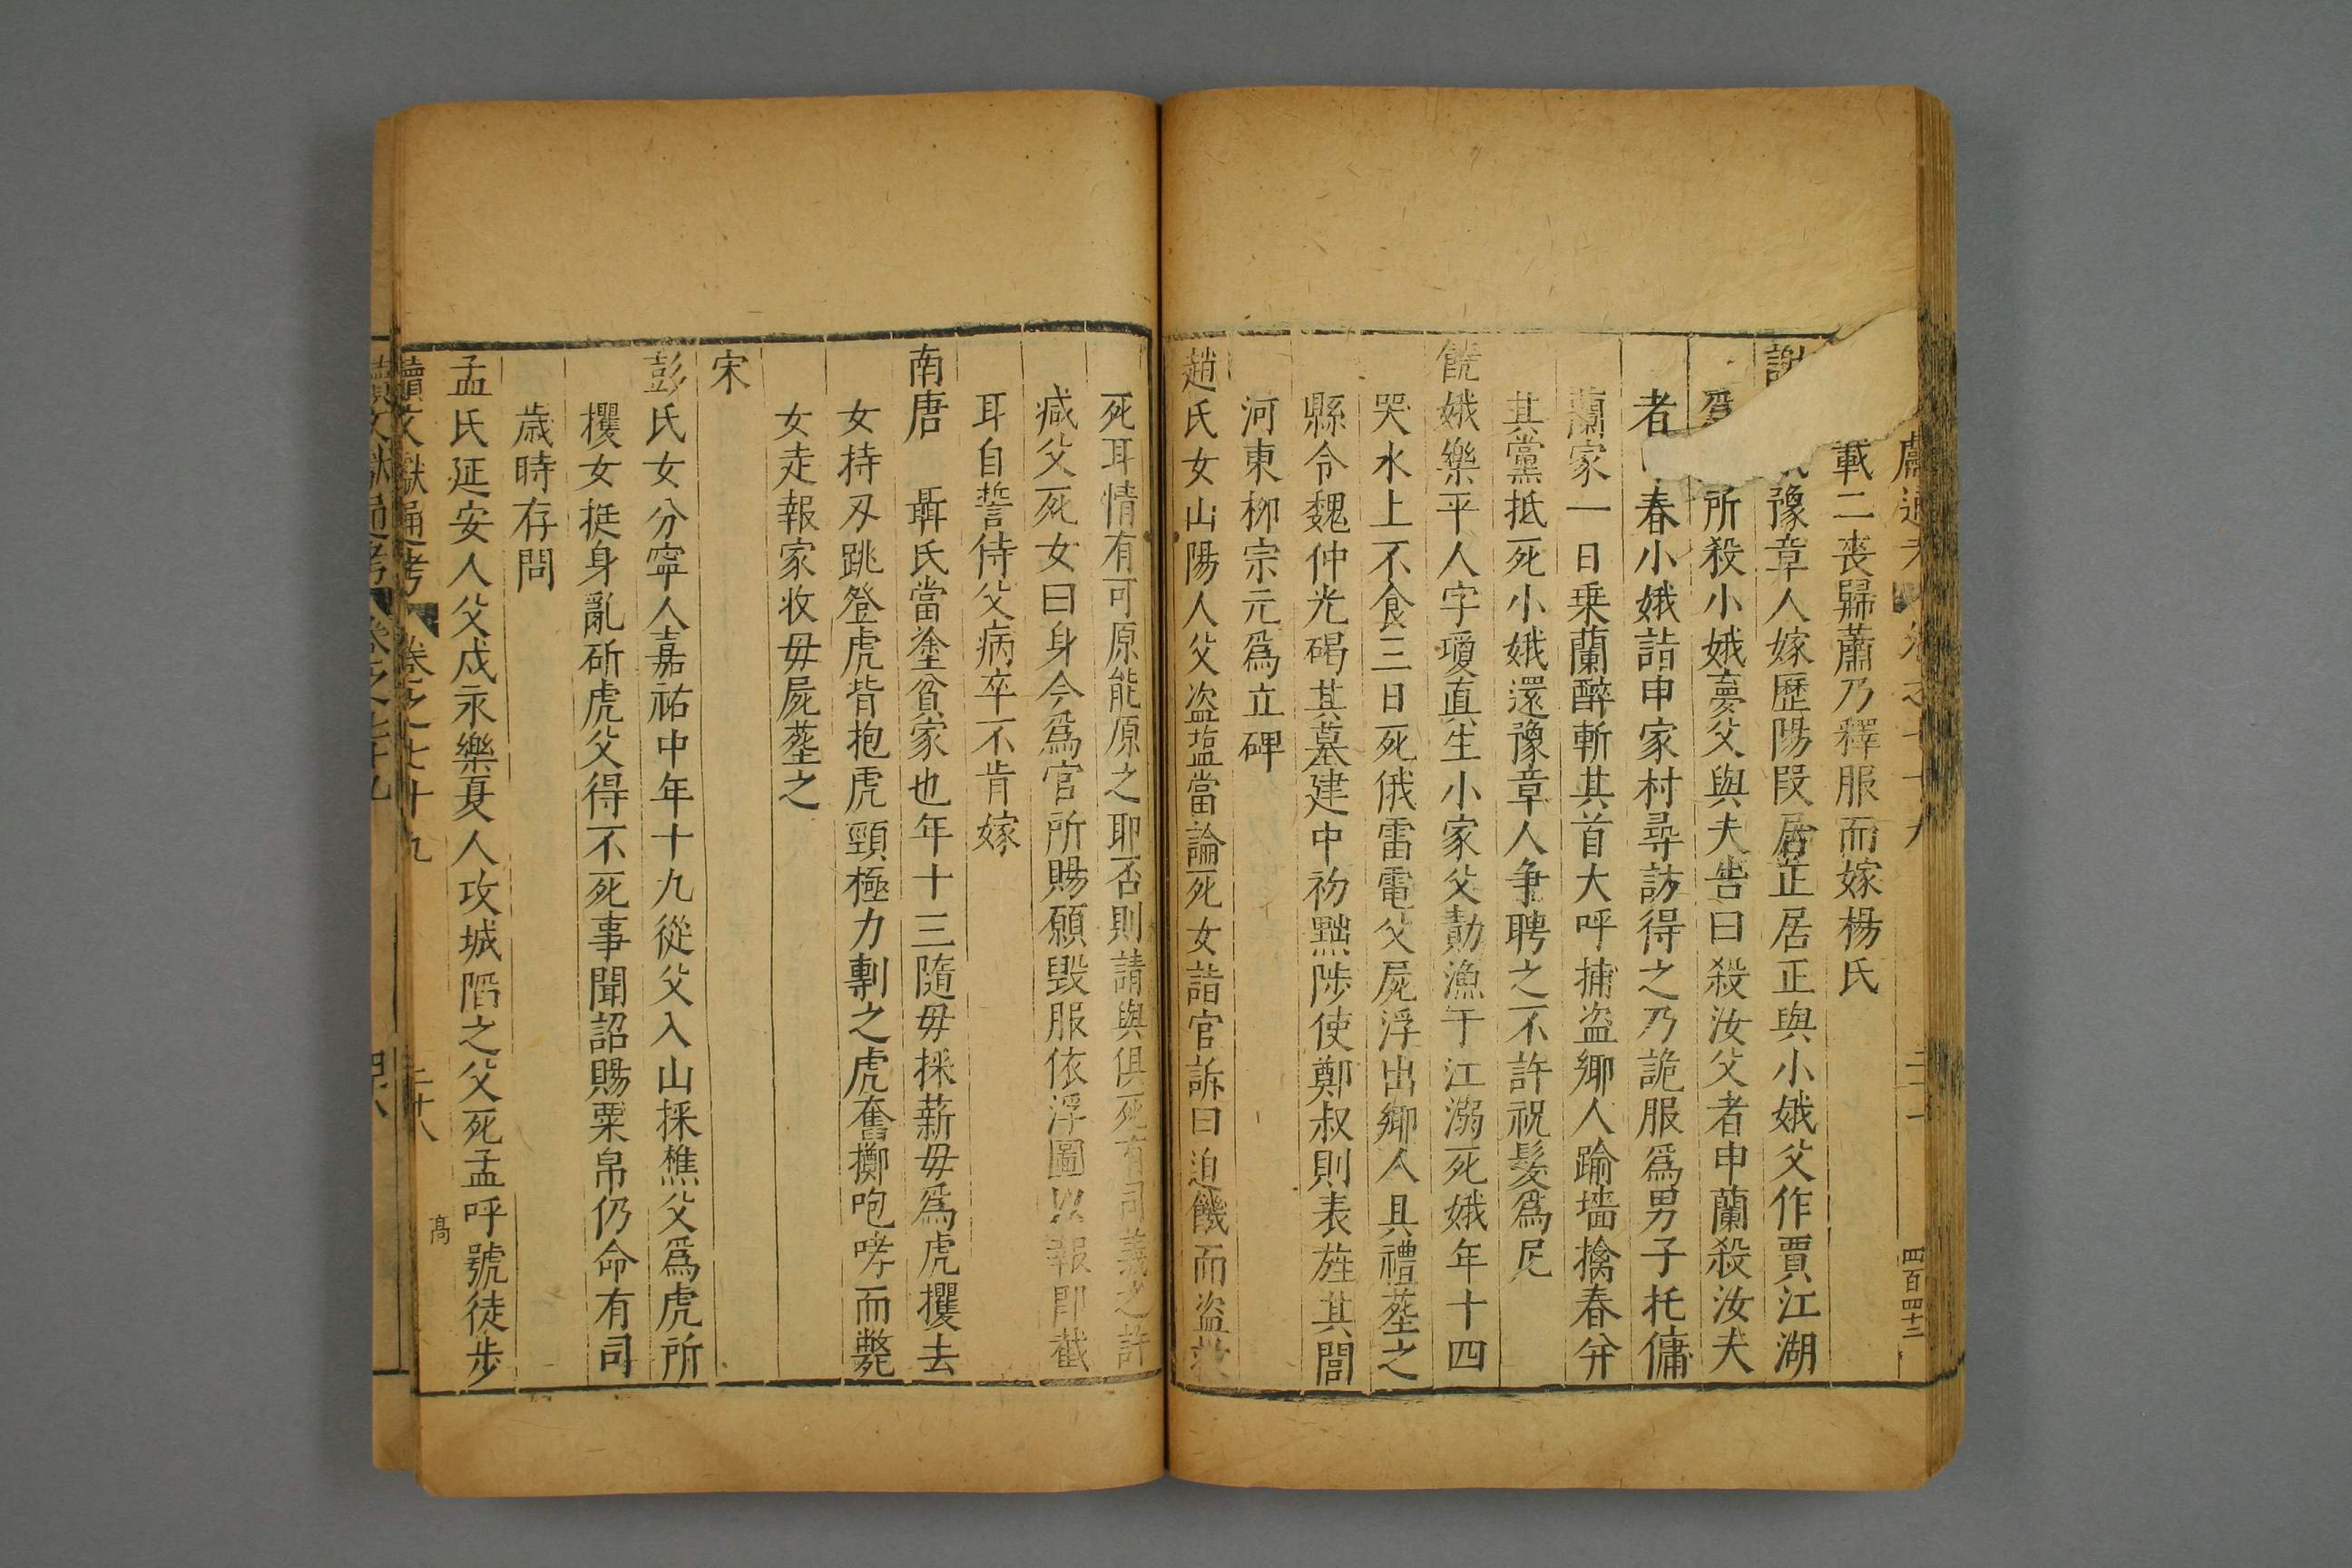 載二喪歸蕭乃釋服而嫁楊氏
謝 豫章人嫁歷陽段居正居正與小娥父作賈江湖
爲 所殺小娥夢父與夫告曰殺汝父者申蘭殺汝夫
者 春小娥詣申家村尋訪得之乃詭服爲男子托傭
蘭家一日乗蘭醉斬其首大呼捕盗鄉人踰墻擒春幷
其黨抵死小娥還豫章人争聘之不許祝髮爲尼
饒娥樂平人字瓊真生小家父勣漁于江溺死娥年十四
哭水上不食三日死俄雷電父屍浮出鄉人具禮塟之
縣令魏仲光碣其墓建中初黜陟使鄭叔則表旌其閭
河東栁宗元爲立碑
趙氏女山陽人父盗塩當論死女詣官訴曰迫饑而盗救
四百四十二
死耳情有可原能原之耶否則請與俱死有司義之許
减父死女曰身今爲官所賜願毀服依浮圖以報即截
耳自誓侍父病卒不肯嫁
南唐 聶氏當塗貧家也年十三隨毋採薪毋爲虎攫去
女持刃跳登虎背抱虎頸極力剸之虎奮擲咆哮而斃
女走報家收毋屍塟之
宋
彭氏女分寧人嘉祐中年十九從父入山採樵父爲虎所
攫女挺身亂斫虎父得不死事聞詔賜粟帛仍命有司
歳時存問
孟氏延安人父戍永樂夏人攻城陷之父死孟呼號徒步
續文獻通考 卷之七十九 二十八 高